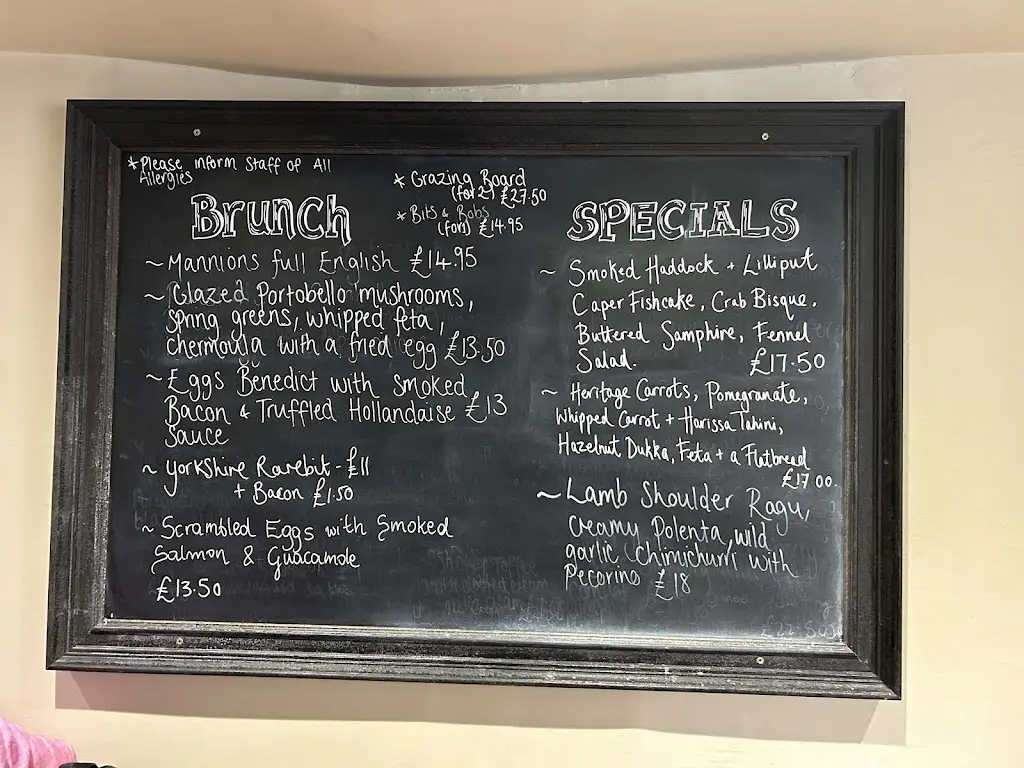 *Please inform staff of All
Allergies
* Grazing Board
(for 2) £27.50
* Bits & Bobs
(for 1) £14.95
Brunch
~ Mannions full English £14.95
~ Glazed Portobello mushrooms,
spring greens, whipped feta,
chermoula with a fried egg £13.50
~ Eggs Benedict with smoked
Bacon & Truffled Hollandaise £13
Sauce
~ Yorkshire Rarebit - £11
+ Bacon £1.50
~ Scrambled Eggs with Smoked
Salmon & Guacamole
£13.50
SPECIALS
~ Smoked Haddock + Lilliput
Caper Fishcake, Crab Bisque,
Buttered Samphire, Fennel
Salad. £17.50
~ Heritage Carrots, Pomegranate,
Whipped Carrot + Harissa Tahini,
Hazelnut Dukka, Feta + a Flatbread
£17.00.
~ Lamb Shoulder Ragu,
Creamy Polenta, wild
garlic Chimichurri with
Pecorino £18